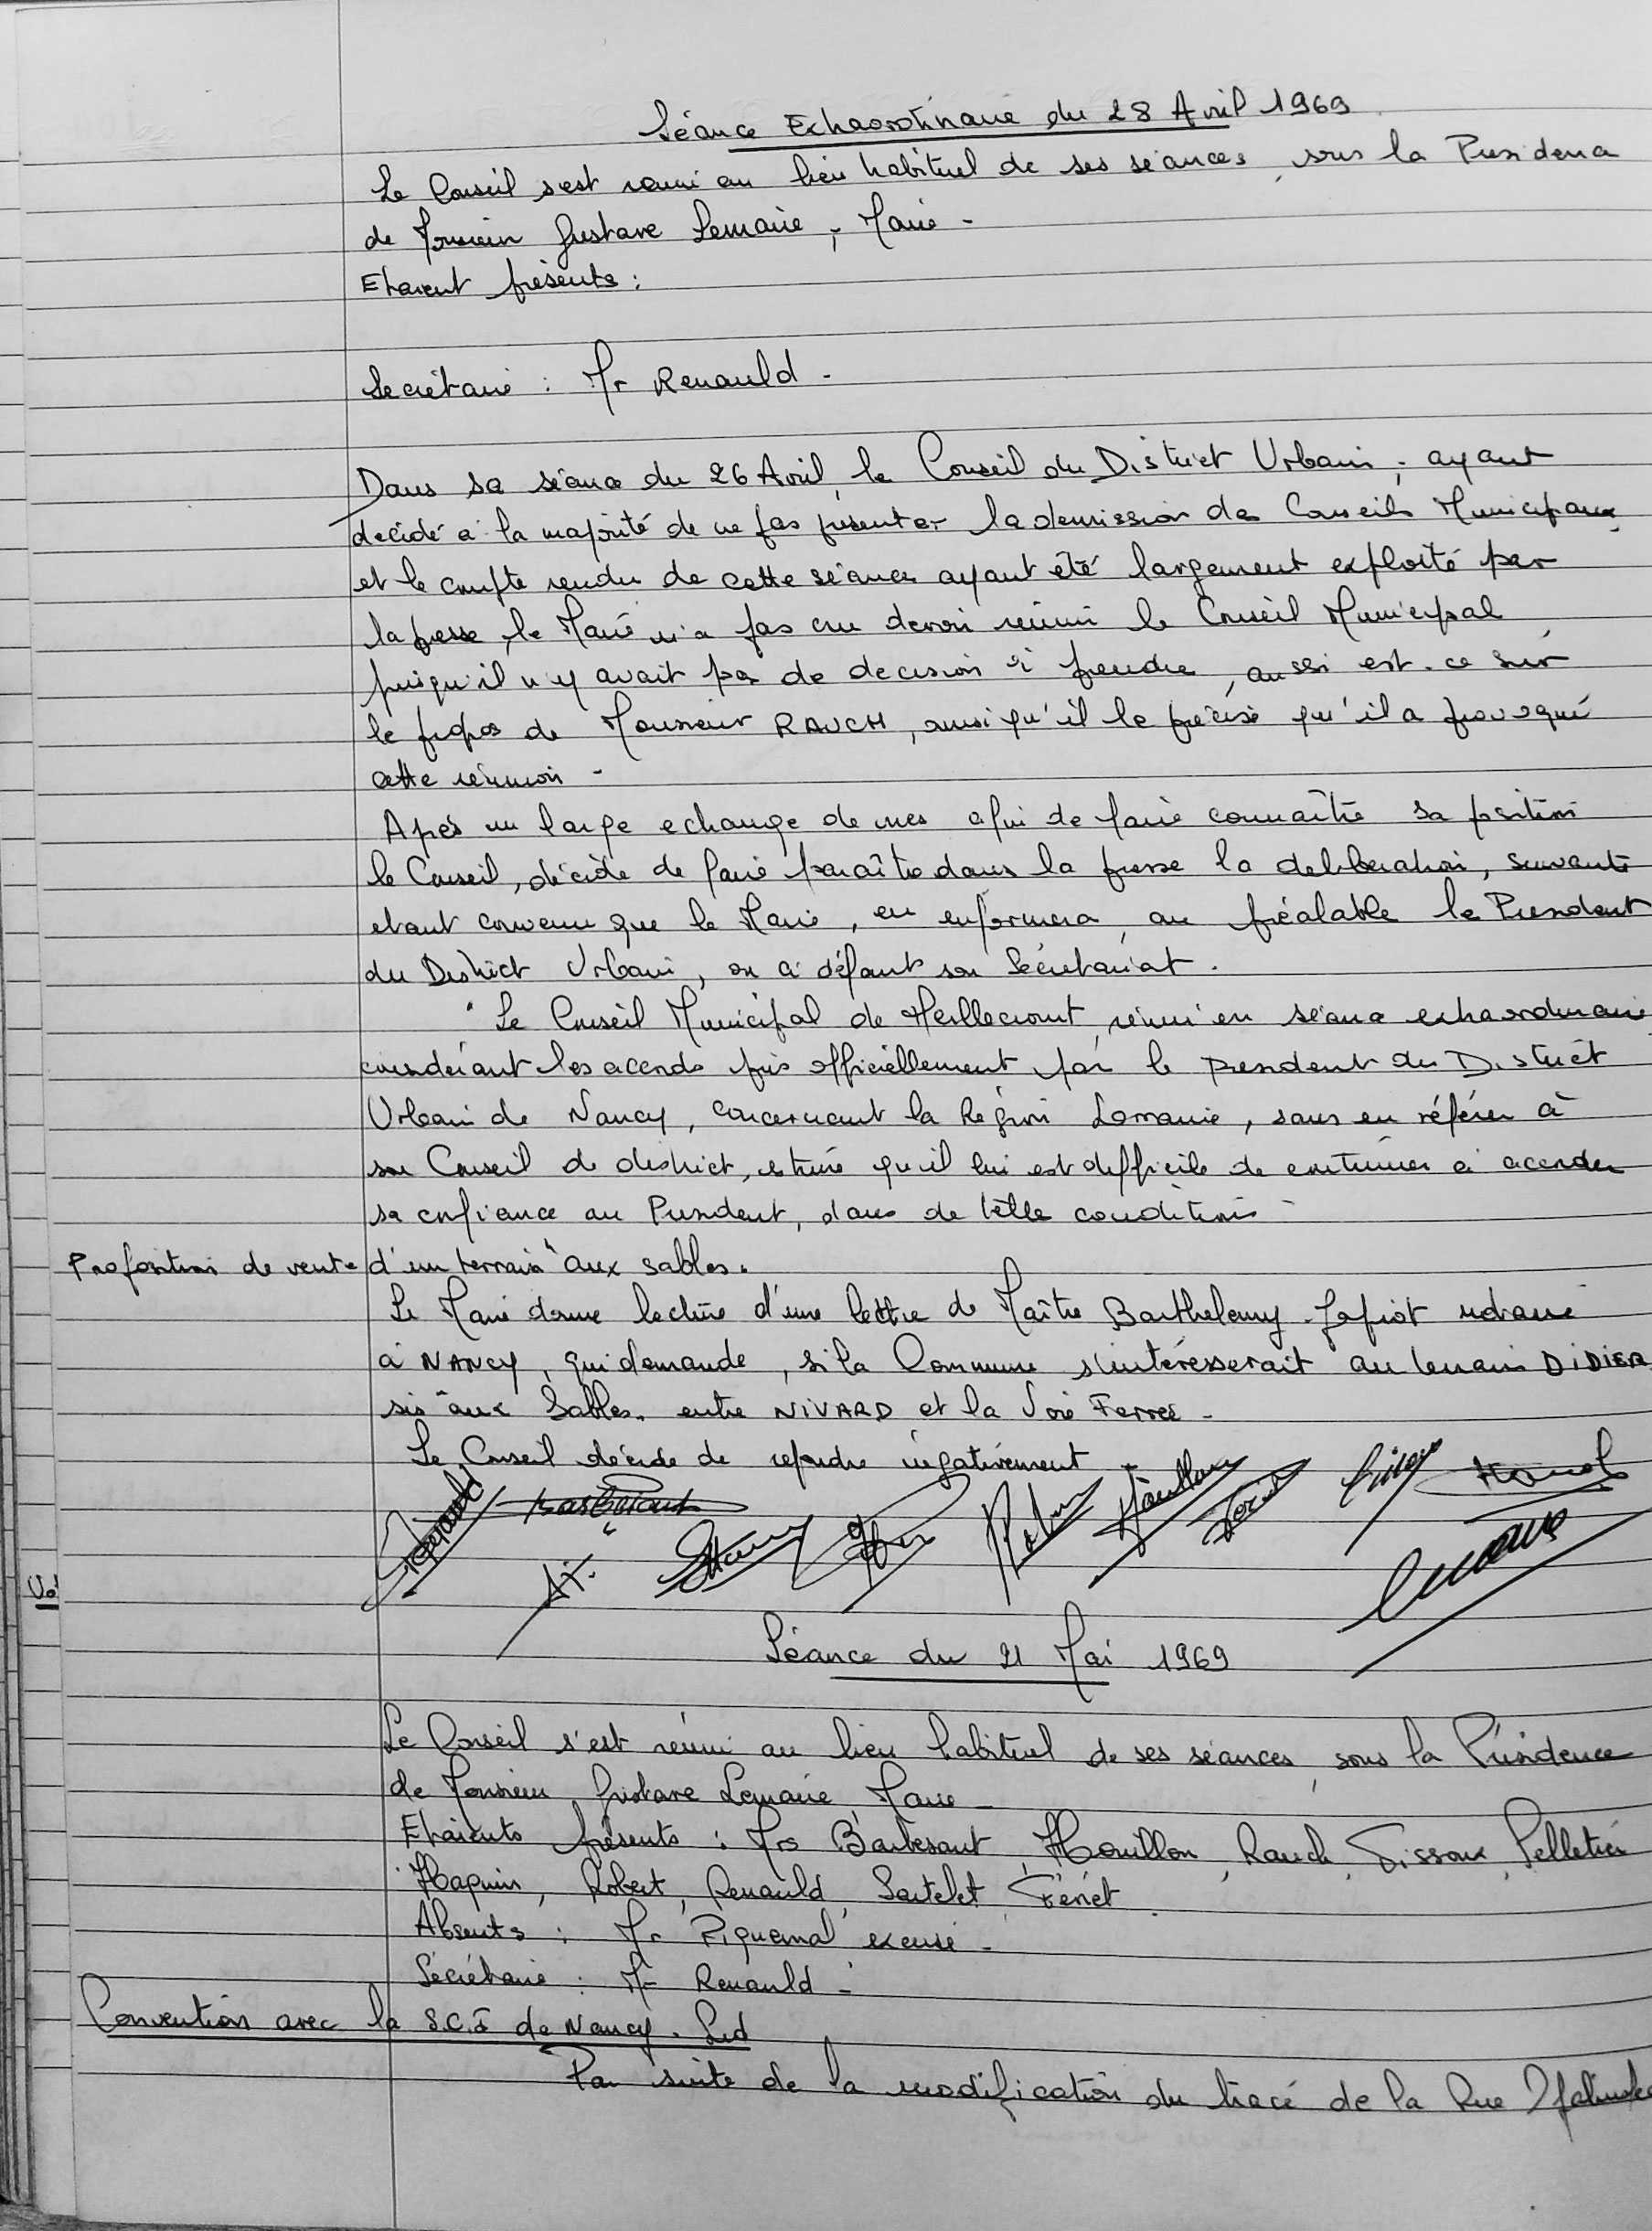 Séance Extraordinaire du 28 Avril 1969
Le Conseil s'est réuni au lieu habituel de ses séances, sous la Presidence
de Monsieur Gustave Lemaire, Maire -
Etaient présents :
Secrétaire : Mr Renauld -
Dans sa séance du 26 Avril, le Conseil du District Urbain, ayant
decidé à la majorité de ne pas présenter la demission des Conseils Municipaux,
et le compte rendu de cette séance ayant été largement exploité par
la presse, le Maire n'a pas cru devoir réunir le Conseil Municipal,
puisqu'il n'y avait pas de decision à prendre, aussi est-ce sur
le propos de Monsieur RAUCH, ainsi qu'il le précise qu'il a provoqué
cette réunion -
Après un large echange de vues afin de faire connaître sa position
le Conseil, décide de faire paraître dans la presse la deliberation, suivante
etant convenu que le Maire, en informera, au préalable le President
du District Urbain, ou à défaut son Secrétariat.
" Le Conseil Municipal de Heillecourt, réuni en séance extraordinaire
considérant les accords pris officiellement par le President du District
Urbain de Nancy, concernant la Région Lorraine, sans en référer à
son Conseil de district, estime qu'il lui est difficile de continuer à accorder
sa confiance au President, dans de telle conditions -
Proposition de vente d'un terrain "aux sables"
Le Maire donne lecture d'une lettre de Maître Barthelemy-Jafiot notaire
à NANCY, qui demande, si la Commune s'intéresserait au terrain DIDIER
sis "aux Sables" entre NIVARD et la Voie Ferrée -
Le Conseil décide de repondre négativement -
Renauld Barbesant
Séance du 21 Mai 1969
Le Conseil s'est réuni au lieu habituel de ses séances, sous la Présidence
de Monsieur Gustave Lemaire, Maire -
Etaients présents : Mrs Barbesant, Houillon, Rauch, Tissoux, Pelletier
Haquin, Robert, Renauld, Sartelet, Ferret.
Absents : Mr Piquemal excusé -
Sécrétaire : Mr Renauld -
Convention avec la S.C.I de Nancy-Sud
Par suite de la modification du tracé de la Rue